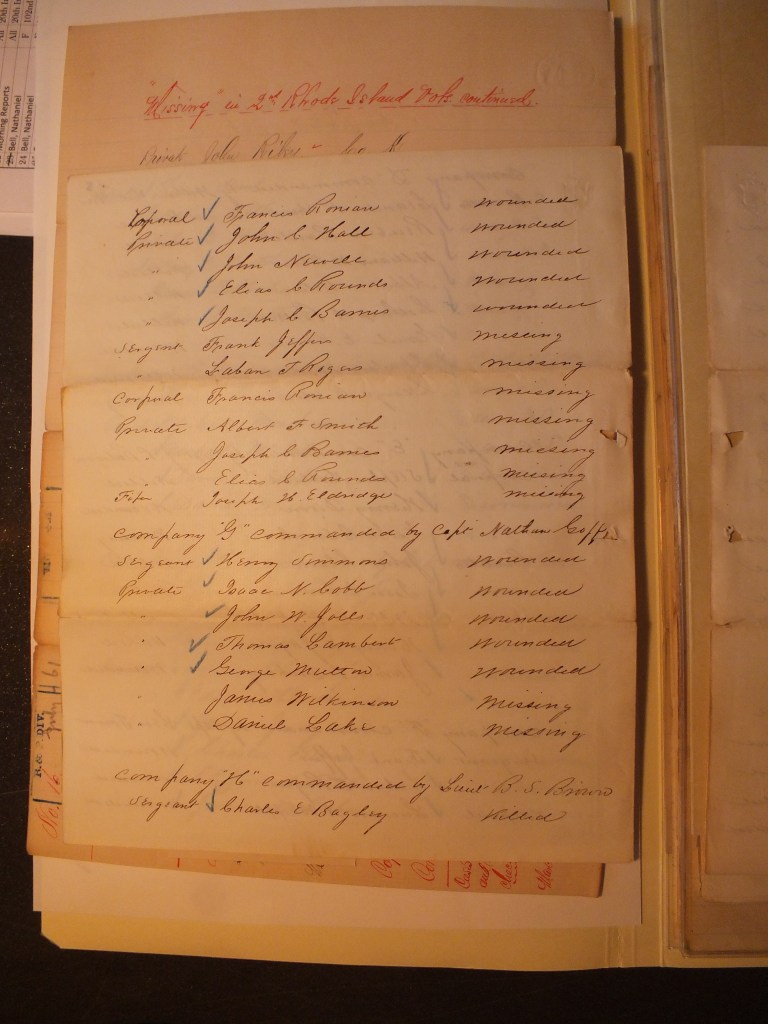 "Missing" in 2d Rhode Island Vols. continued.
Private John
Corporal Francis Ronian wounded
Private John C Hall wounded
" John Newell wounded
" Elias C Rounds wounded
Joseph C Barnes wounded
Sergent Frank Jeffers missing
" Laban T Rogers missing
Corporal Francis Ronian missing
Private Albert F Smith missing
" Joseph C Barnes missing
Elias C Rounds missing
Fifer Joseph H Eldridge missing
Company "G" commanded by Capt Nathan Goff
Sergeant Henry Simmons wounded
Private Isaac N. Cobb wounded
" John W. Jolls wounded
" Thomas Lambert wounded
" George wounded
" James Wilkinson Missing
" Daniel Lake Missing
Company "H" commanded by Lieut B. S. Brown
Sergeant Charles E Bagley Killed
Bell, Nathaniel
24 Bell, Nathaniel
DIV.
July 61